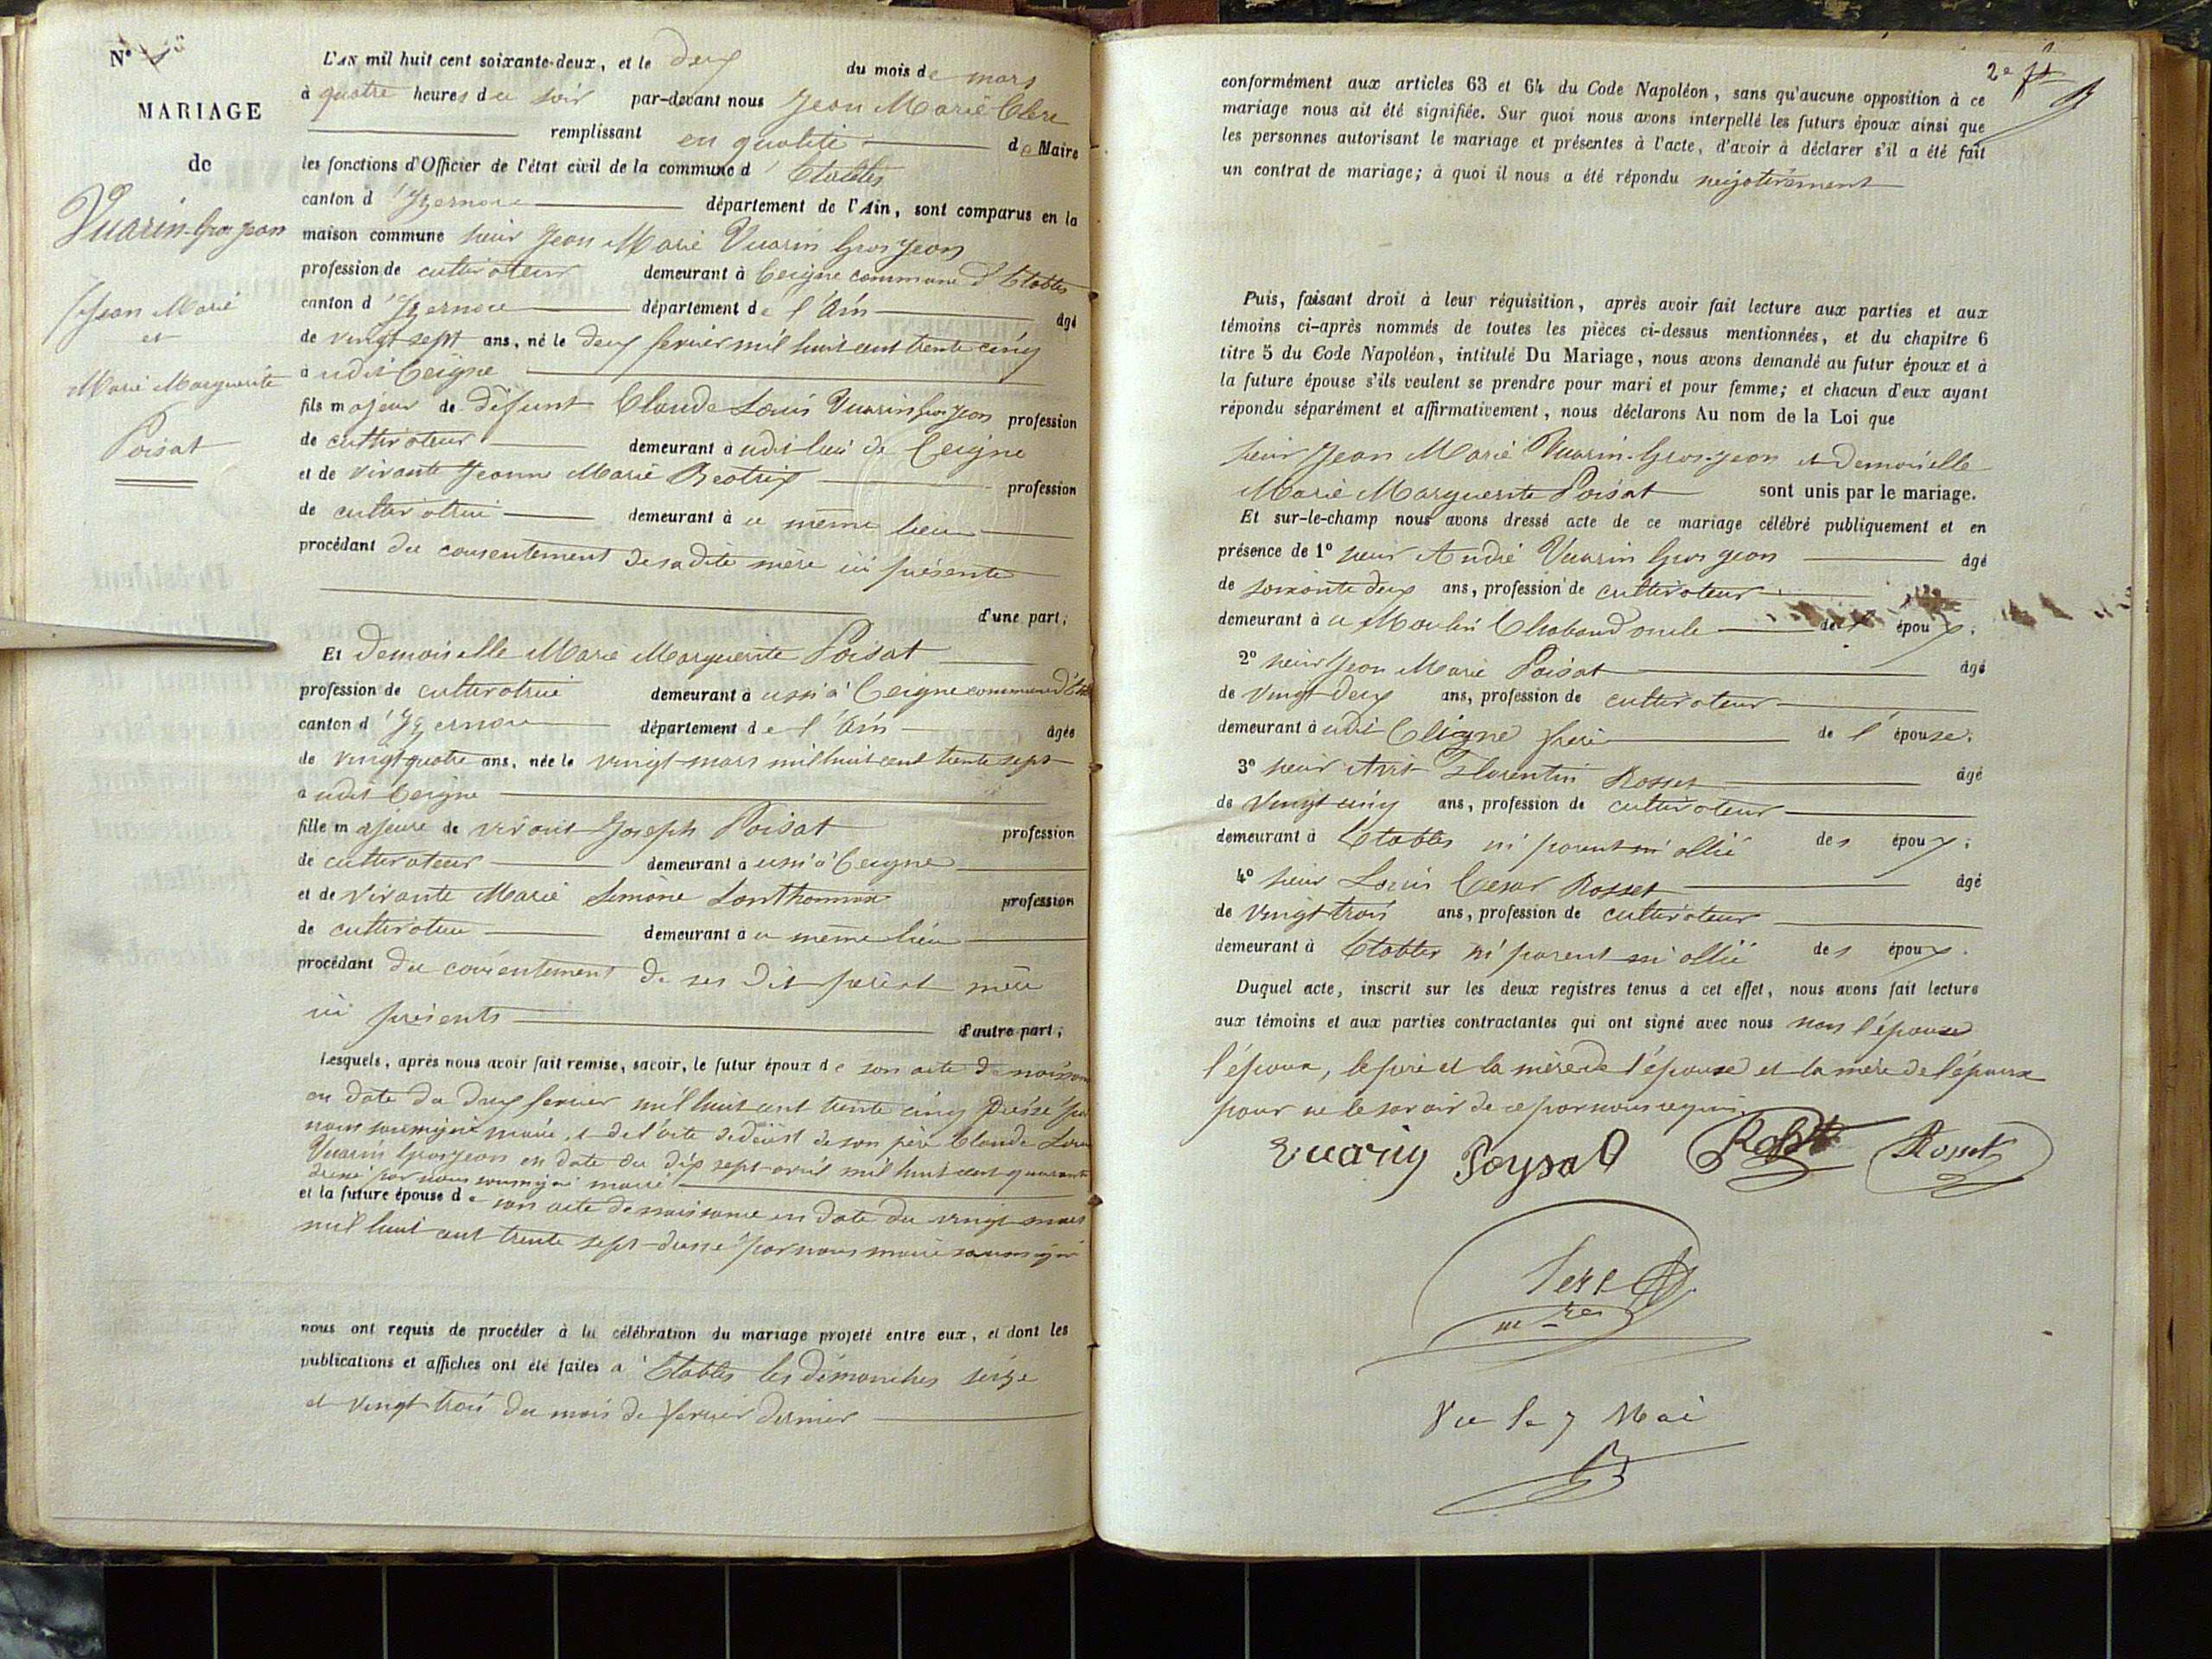 N°
MARIAGE
de
Vuarin-Gros jean
Jean Marie
et
Marie Marguerite
Poisat
L'AN mil huit cent soixante-deux, et le deux du mois de mars
à quatre heures du soir par-devant nous Jean Marie Clerc
remplissant en qualité de Maire
les fonctions d'Officier de l'état civil de la commune d' Etables
canton d'Izernore département de l'Ain, sont comparus en la
maison commune sieur Jean Marie Vuarin Gros Jean
profession de cultivateur demeurant à Ceigne commune d'Etables
canton d'Izernore département de l'Ain âgé
de vingt sept ans, né le deux fevrier mil huit cent trente cinq
à udit Ceigne
fils majeur de défunt Claude Louis Vuarin Gros Jean profession
de cultivateur demeurant à udit lieu de Ceigne
et de vivante Jeanne Marie Beatrix profession
de cultivatrice demeurant à ce même lieu
procédant du consentement de sa dite mère ici présente
d'une part;
Et demoiselle Marie Marguerite Poisat
profession de cultivatrice demeurant à ussi à Ceigne commune d'Etab
canton d'Izernore département de l'Ain âgée
de vingt quatre ans, née le vingt mars mil huit cent trente sept
à udit Ceigne
fille majeure de vivant Joseph Poisat profession
de cultivateur demeurant à ussi à Ceigne
et de vivante Marie Simone profession
de demeurant à ce même lieu
procédant du consentement de ses dit père et mère
ici présents d'autre part;
Lesquels, après nous avoir fait remise, savoir, le futur époux de son acte de
en date du deux fevrier mil huit cent trente cinq
nous maire, et de l'acte de décès de son père Claude
Vuarin Grosjean en date du dix sept avril mil huit cent quarante
dressé par nous maire
et la future épouse de son acte de naissance en date du vingt mars
mil huit cent trente sept dressé par nous maire
nous ont requis de procéder à la célébration du mariage projeté entre eux, et dont les
publications et affiches ont été faites à Etables les dimanches seize
et vingt trois du mois de fevrier dernier
2e
conformément aux articles 63 et 64 du Code Napoléon, sans qu'aucune opposition à ce
mariage nous ait été signifiée. Sur quoi nous avons interpellé les futurs époux ainsi que
les personnes autorisant le mariage et présentes à l'acte, d'avoir à déclarer s'il a été fait
un contrat de mariage; à quoi il nous a été répondu negativement
Puis, faisant droit à leur réquisition, après avoir fait lecture aux parties et aux
témoins ci-après nommés de toutes les pièces ci-dessus mentionnées, et du chapitre 6
titre 5 du Code Napoléon, intitulé Du Mariage, nous avons demandé au futur époux et à
la future épouse s'ils veulent se prendre pour mari et pour femme; et chacun d'eux ayant
répondu séparément et affirmativement, nous déclarons Au nom de la Loi que
sieur Jean Marie Vuarin-Gros-jean et demoiselle
Marie Marguerite Poisat sont unis par le mariage.
Et sur-le-champ nous avons dressé acte de ce mariage célébré publiquement et en
présence de 1° sieur André Vuarin Gros jean âgé
de soixante deux ans, profession de cultivateur
demeurant à u Moulin Chabaud oncle de époux;
2° sieur Jean Marie Poisat âgé
de vingt deux ans, profession de cultivateur
demeurant à udit frère de l'épouse;
3° sieur Florentin Rosset âgé
de vingt cinq ans, profession de cultivateur
demeurant à Etables ni parent ni allié des époux;
4° sieur Louis Cesar Rosset âgé
de vingt trois ans, profession de cultivateur
demeurant à Etables ni parent ni allié des époux.
Duquel acte, inscrit sur les deux registres tenus à cet effet, nous avons fait lecture
aux témoins et aux parties contractantes qui ont signé avec nous non l'épouse
l'époux, le père et la mère de l'épouse et la mère de l'époux
pour ne le savoir de ce par nous requis.
Vuarin Poysat Rosset
Vu le 7 Mai